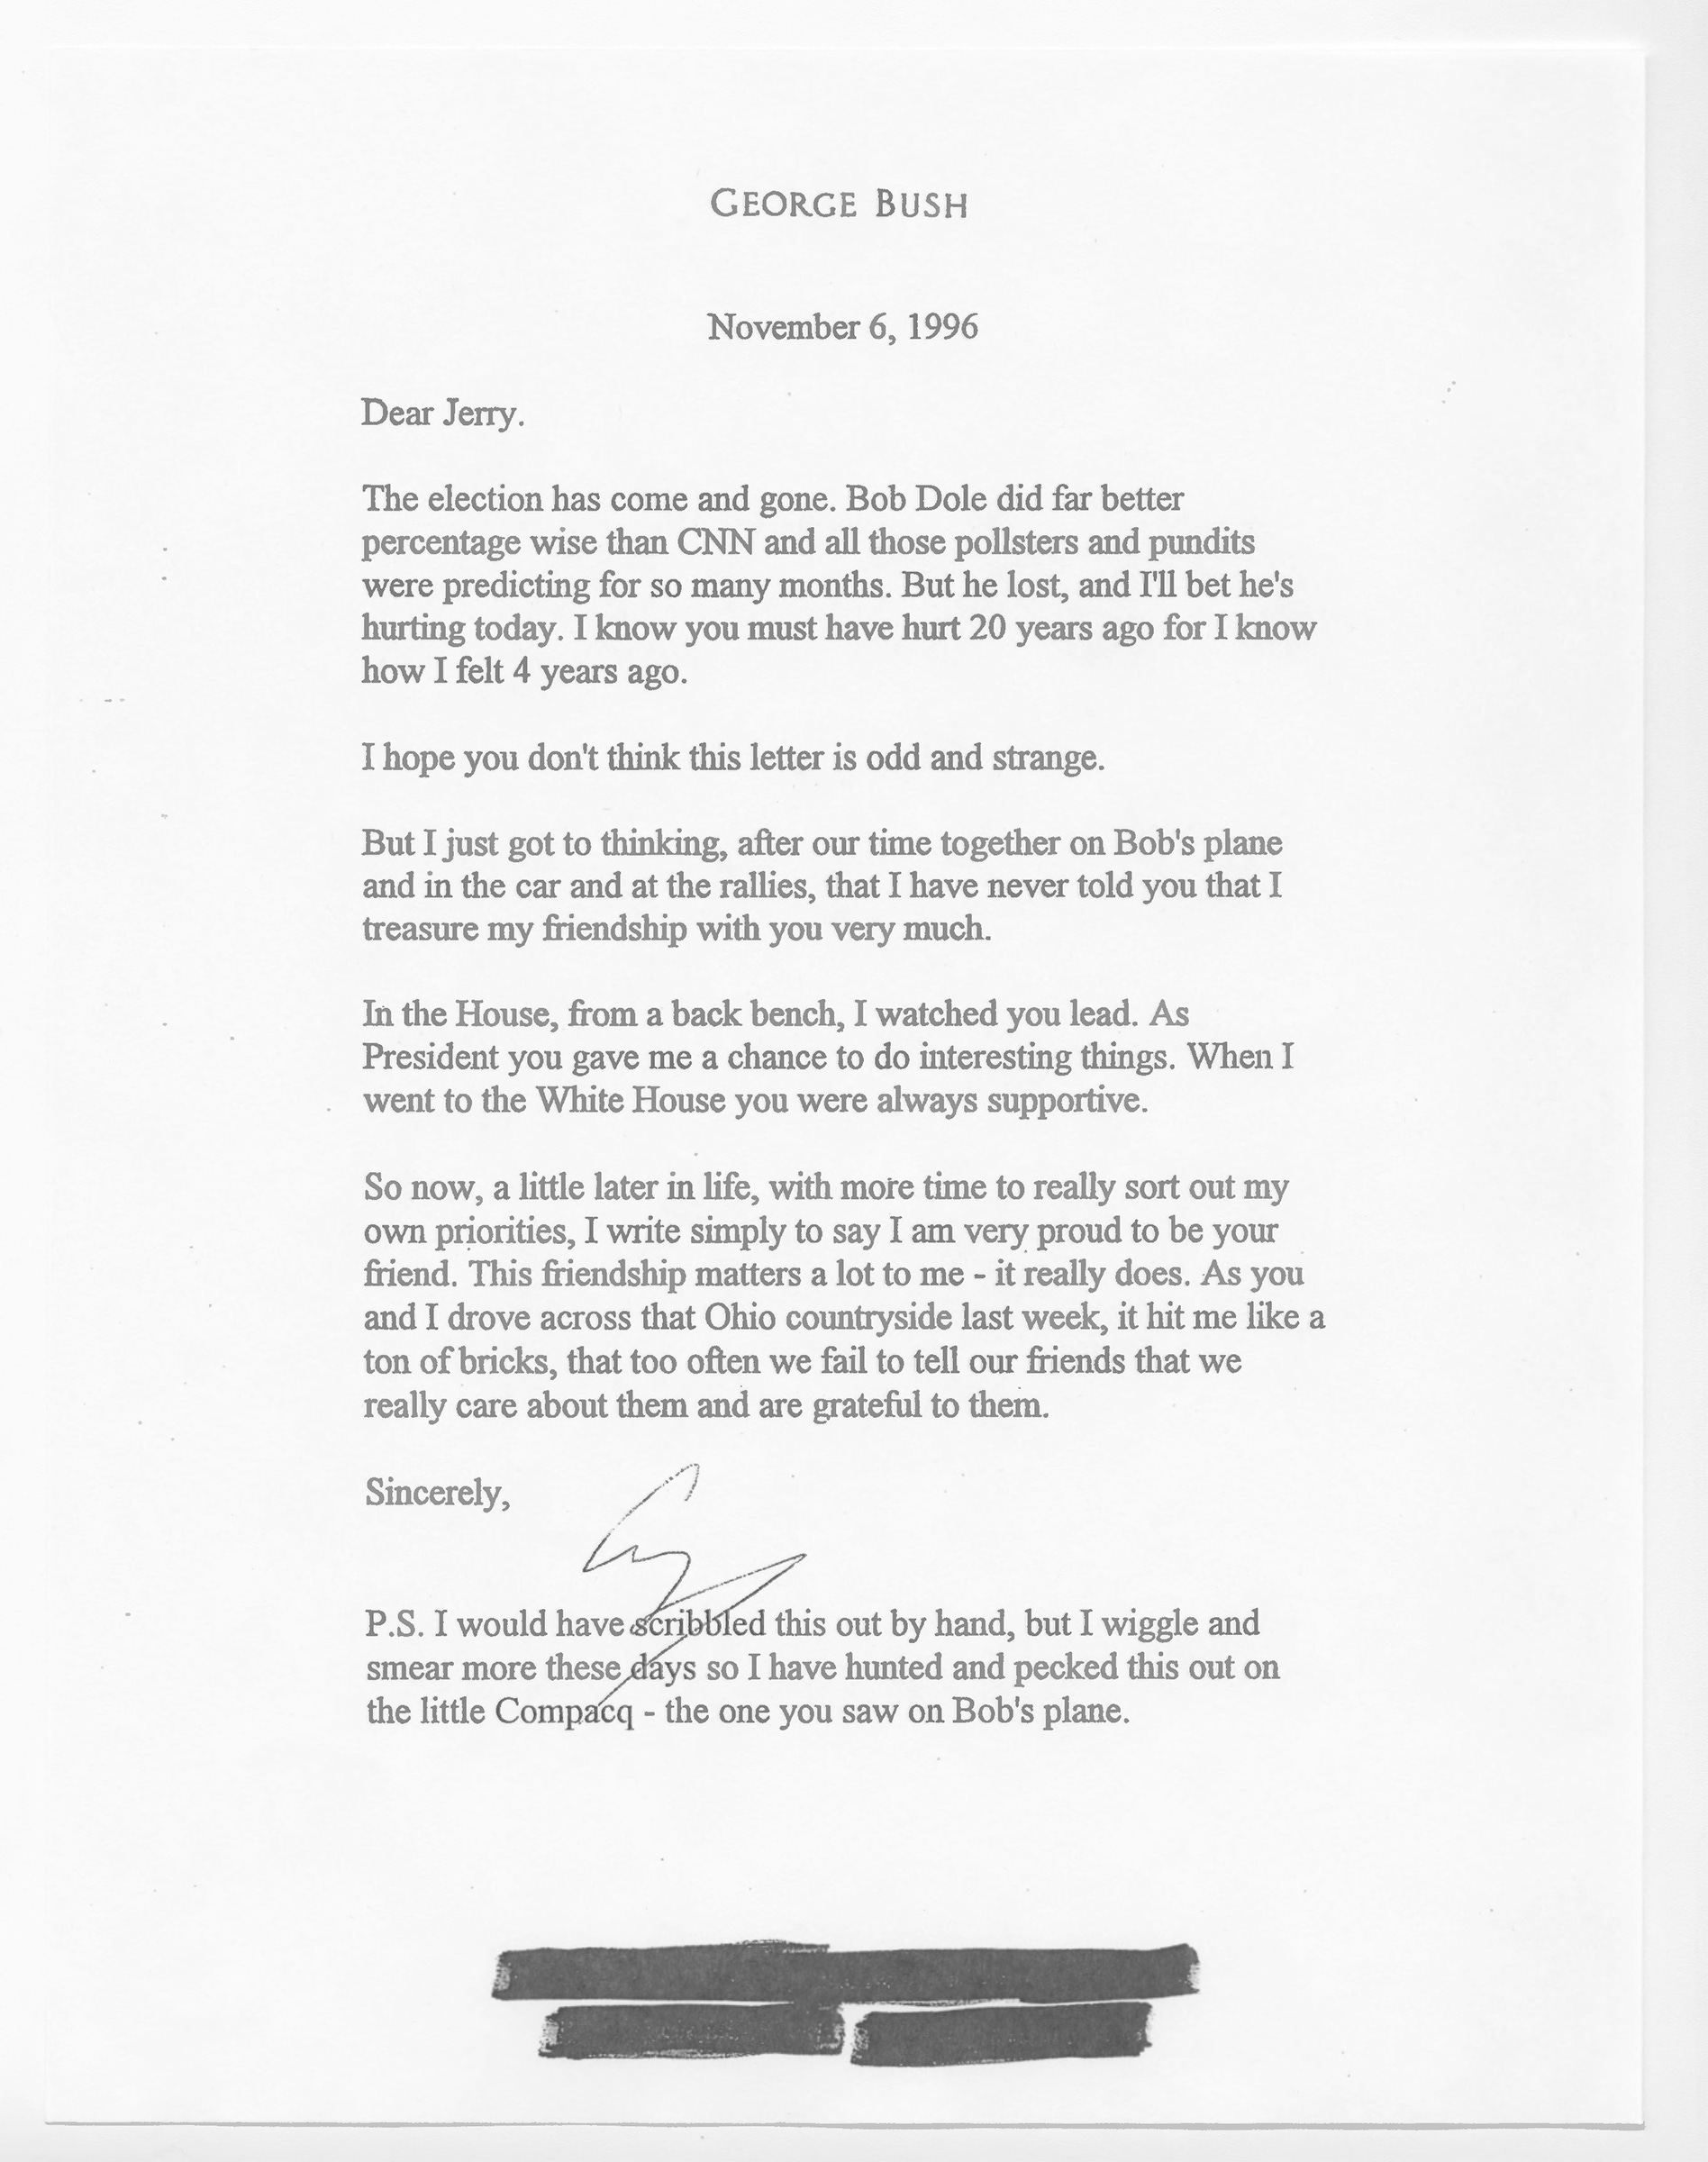 GEORGE BUSH
November 6, 1996
Dear Jerry.
The election has come and gone. Bob Dole did far better
percentage wise than CNN and all those pollsters and pundits
were predicting for so many months. But he lost, and I'll bet he's
hurting today. I know you must have hurt 20 years ago for I know
how I felt 4 years ago.
I hope you don't think this letter is odd and strange.
But I just got to thinking, after our time together on Bob's plane
and in the car and at the rallies, that I have never told you that I
treasure my friendship with you very much.
In the House, from a back bench, I watched you lead. As
President you gave me a chance to do interesting things. When I
went to the White House you were always supportive.
So now, a little later in life, with more time to really sort out my
own priorities, I write simply to say I am very proud to be your
friend. This friendship matters a lot to me - it really does. As you
and I drove across that Ohio countryside last week, it hit me like a
ton of bricks, that too often we fail to tell our friends that we
really care about them and are grateful to them.
Sincerely,
P.S. I would have scribbled this out by hand, but I wiggle and
smear more these days so I have hunted and pecked this out on
the little Compacq - the one you saw on Bob's plane.